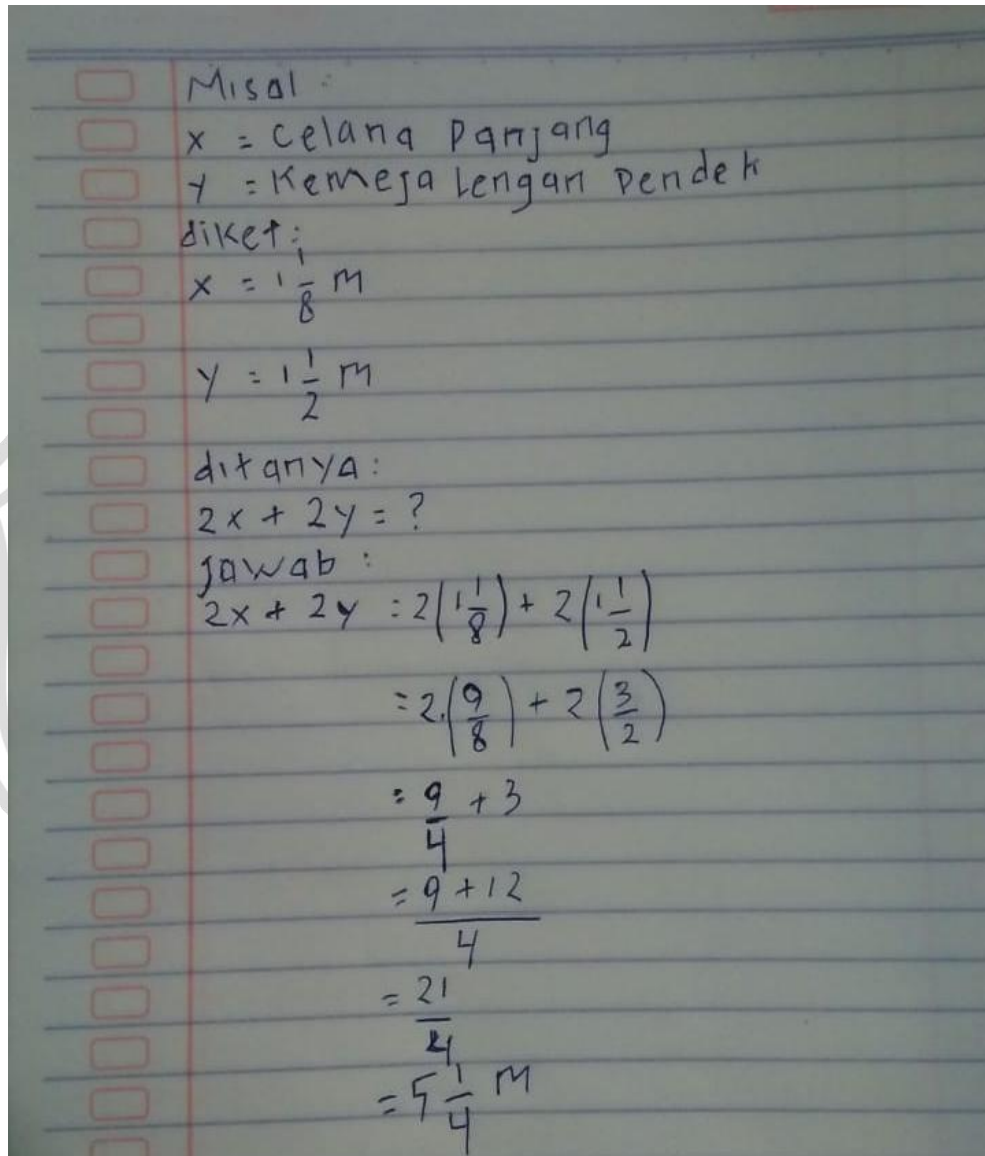 Misal :
x = celana panjang
y = Kemeja Lengan Pendek
diket :
x = 1 1/8 m
y = 1 1/2 m
ditanya :
2x + 2y = ?
jawab :
2x + 2y = 2(1 1/8) + 2(1 1/2)
= 2.(9/8) + 2(3/2)
= 9/4 + 3
= 9 + 12 / 4
= 21/4
= 5 1/4 m